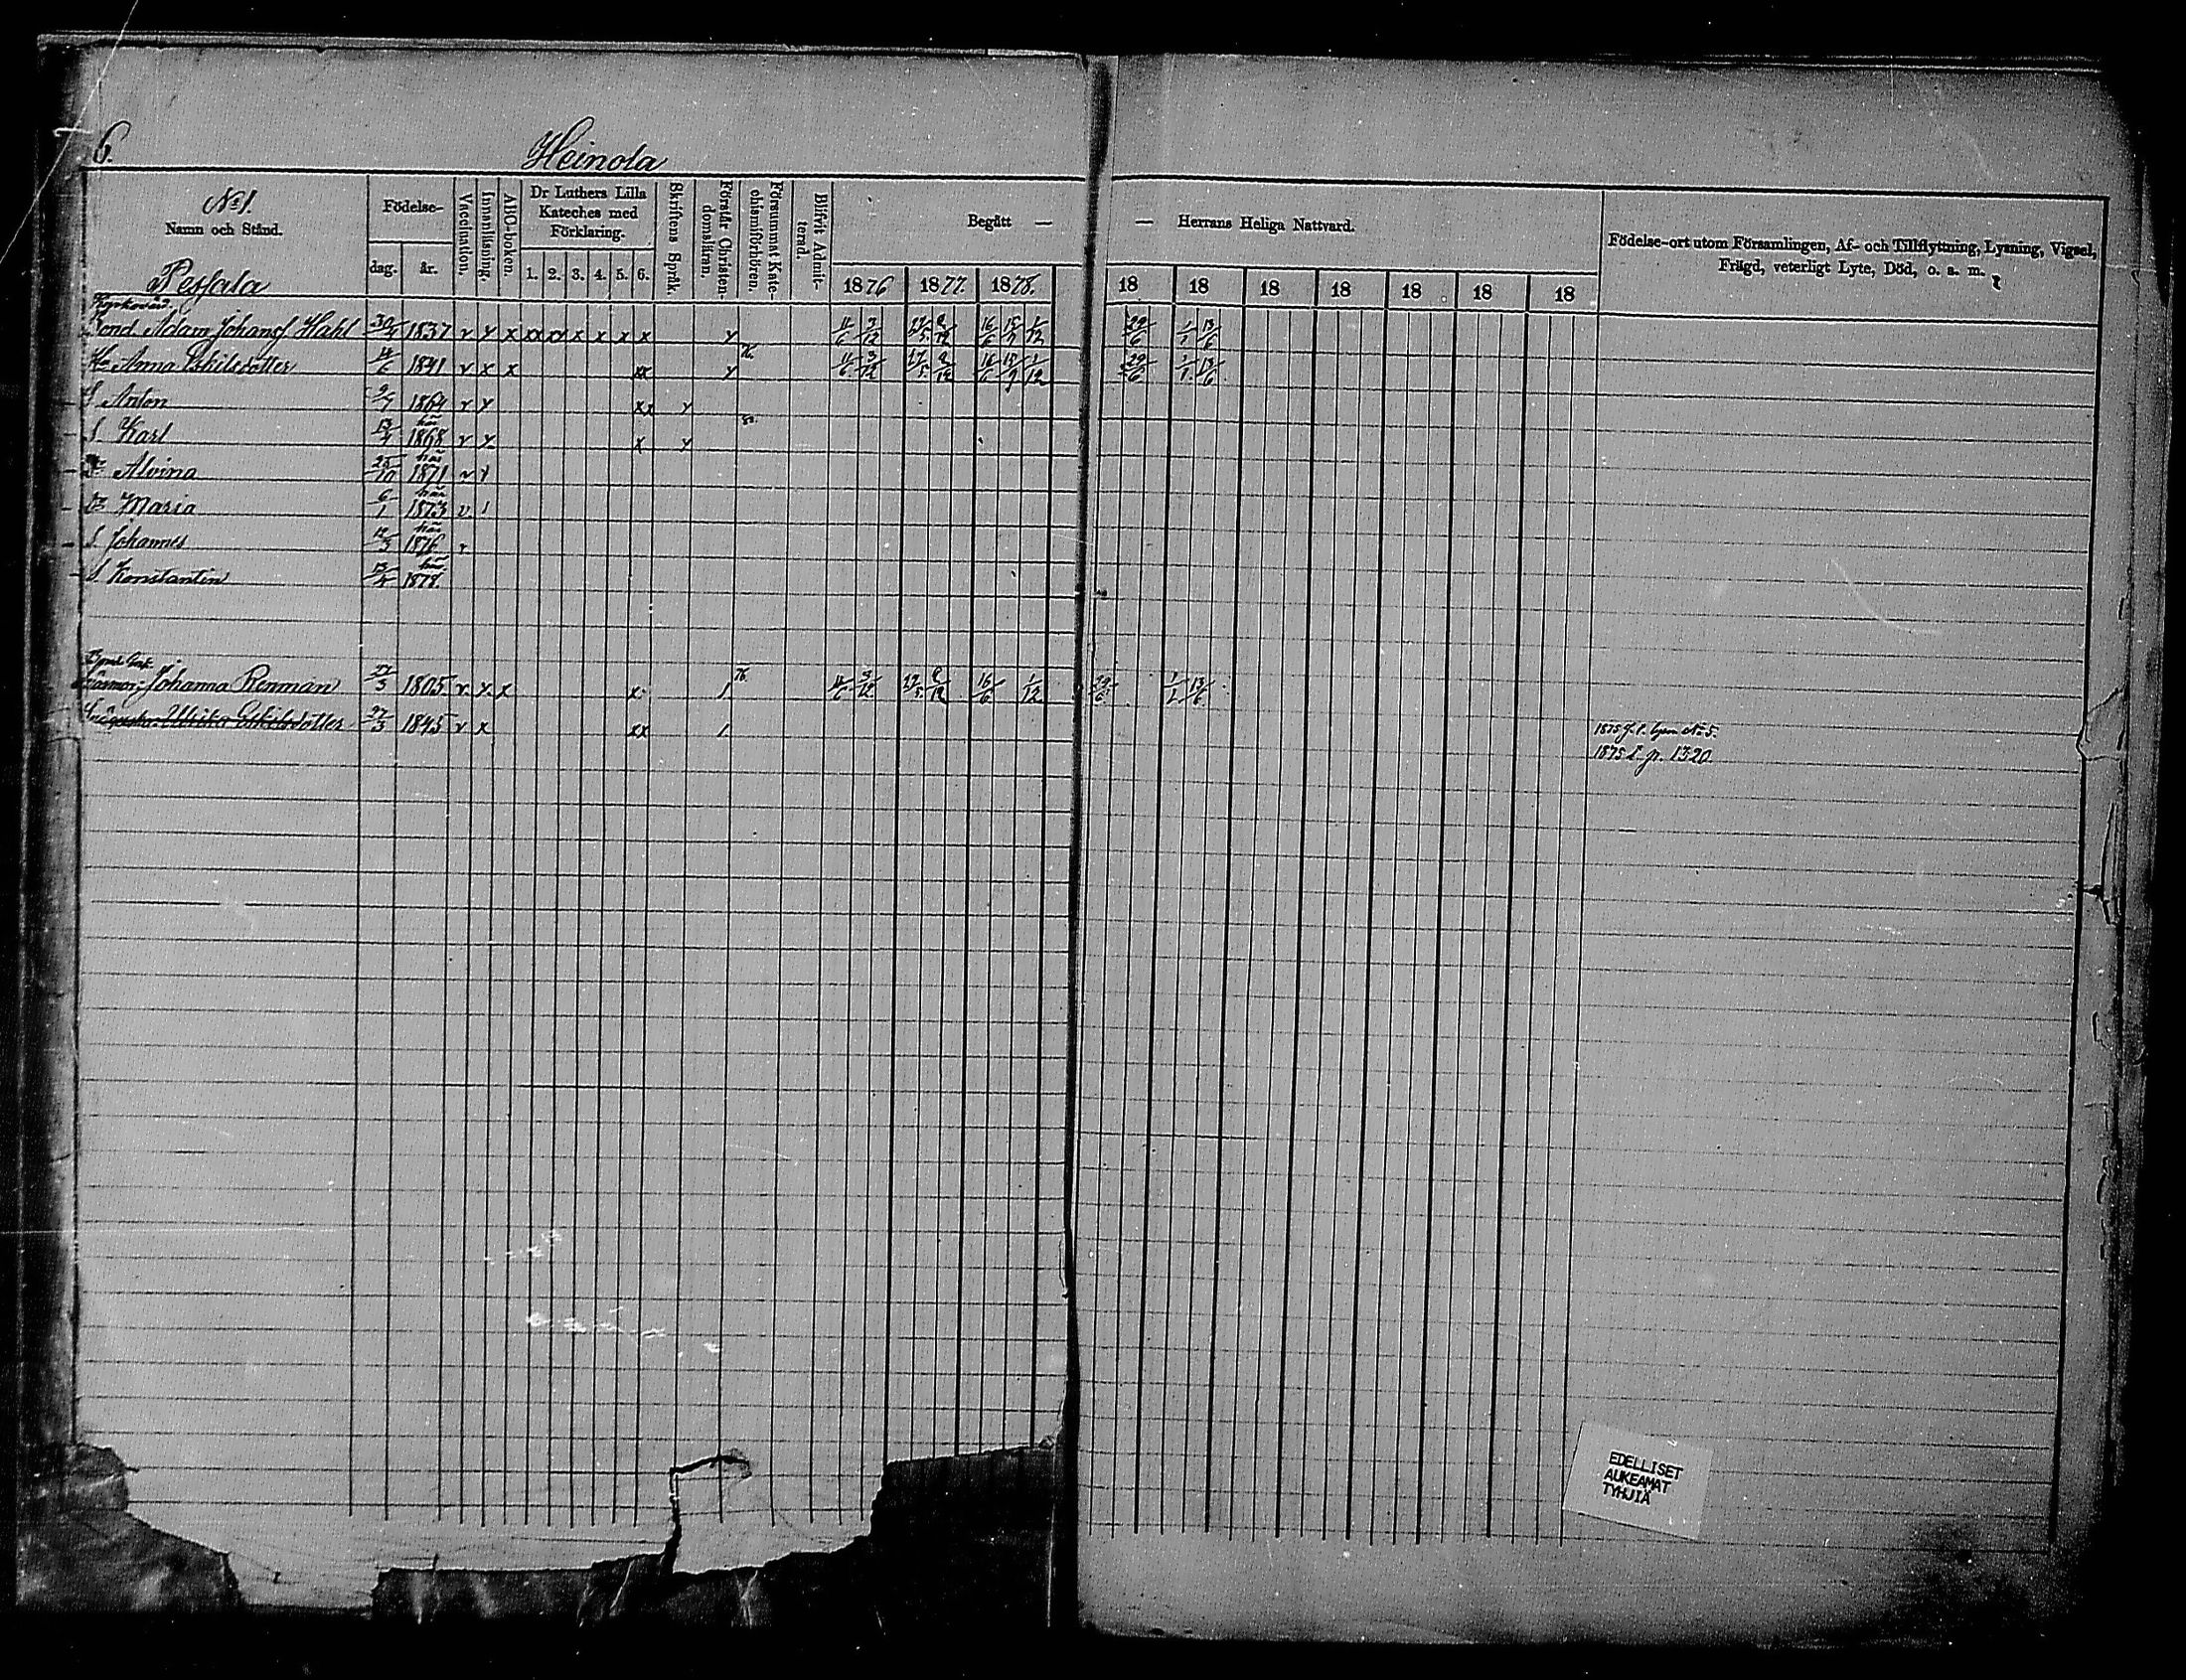 6.
Heinola
No 1.
Namn och Stånd.
Födelse-
dag. år.
Vaccination.
Innanläsning.
ABC-boken.
Dr Luthers Lilla Kateches med Förklaring.
1. 2. 3. 4. 5. 6.
Skriftens Språk.
Förstår Christendomsläran.
Försummat Katechismiförhören.
Blifvit Admitterad.
Begått —
1876 1877. 1878.
— Herrans Heliga Nattvard.
18 18 18 18 18 18 18
Födelse-ort utom Församlingen, Af- och Tillflyttning, Lysning, Vigsel,
Frägd, veterligt Lyte, Död, o. s. m.
Pessala
Kyrkovärd.
Bond Adam Johansf Hahl 30/ 1837 v x x xx xx x x x x 11/6 3/12 27/5 9/12 16/6 15/9 1/12 29/6 1/1 13/6
Hu Anna Eskilsdotter 11/6 1841 v x x xx 76. 11/6 3/12 27/5 9/12 16/6 15/9 1/12 29/6 1/1 13/6
S Anton 9/7 1864 v xx
S Karl här 1868 v x 80.
Dr Alvina 25/10 här 1871 v
Dr Maria 6/1 här 1873 v. 1
S. Johannes 12/3 här 1876 v
S. Konstantin här 1878.
Johanna Renman 27/3 1805 v x x x 76. 11/6 3/12 27/5 9/12 16/6 1/12 29/6 1/1 13/6
Ulrika Eskilsdotter 27/3 1845 v x xx 1875 No 5.
1875 p. 1320
EDELLISET
AUKEAMAT
TYHJIÄ